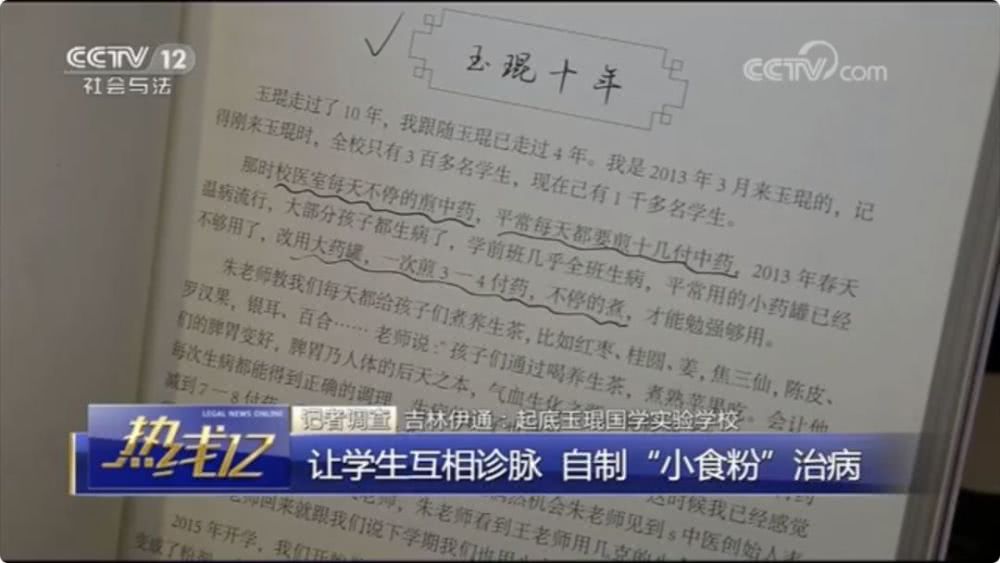 CCTV 12
社会与法
CCTV.com
玉琨十年
玉琨走过了10年，我跟随玉琨已走过4年。我是2013年3月来玉琨的，记
得刚来玉琨时，全校只有3百多名学生，现在已有1千多名学生。
那时校医室每天不停的煎中药，平常每天都要煎十几付中药，2013年春天
温病流行，大部分孩子都生病了，学前班几乎全班生病，平常用的小药罐已经
不够用了，改用大药罐，一次煎3一4付药，不停的煮，才能勉强够用。
朱老师教我们每天都给孩子们煮养生茶，比如红枣、桂圆、姜，焦三仙，陈皮、
罗汉果，银耳、百合……老师说：“孩子们通过喝养生茶，煮熟苹果吃。会让他
们的脾胃变好，脾胃乃人体的后天之本，气血生化之
每次生病都能得到正确的调理，生病
减到7一8付药
LEGAL NEWS ONLINE
热线12
记者调查 吉林伊通：起底玉琨国学实验学校
让学生互相诊脉 自制“小食粉”治病
这时候我已经感觉
老师回来就跟我们说下学期我们也用
朱老师看到王老师用几克的
机会朱老师见到s中医创始人李
2015年开学，我们开始
变成了粉剂